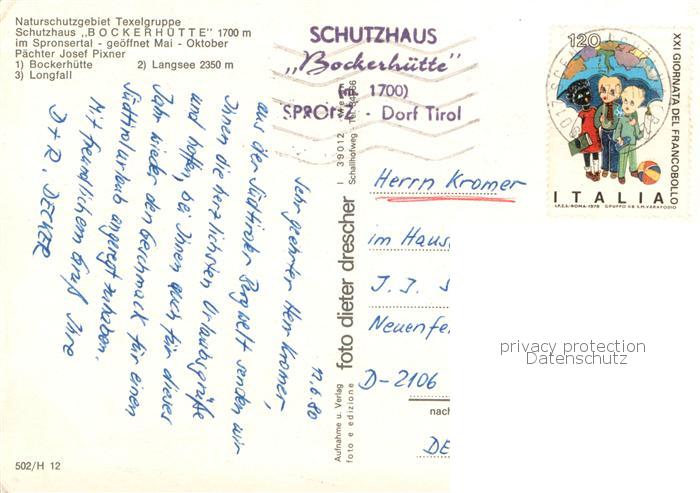 Naturschutzgebiet Texelgruppe
Schutzhaus „BOCKERHÜTTE" 1700 m
im Spronsertal - geöffnet Mai - Oktober
Pächter Josef Pixner
1) Bockerhütte 2) Langsee 2350 m
3) Longfall
SCHUTZHAUS
„Bockerhütte"
(m. 1700)
SPRONZ - Dorf Tirol
120
XXI GIORNATA DEL FRANCOBOLLO
ITALIA
I.P.Z.S.-ROMA-1979
12.6.80
Sehr geehrter Herr Kromer,
aus der Südtiroler Bergwelt senden wir
Ihnen die herzlichsten Urlaubsgrüße
und hoffen, bei Ihnen auch für dieses
Jahr wieder den Geschmack für einen
Südtirolurlaub angeregt zu haben.
Mit freundlichem Gruß Ihre
D + R. DECKER
Aufnahme u. Verlag
foto e edizione
foto dieter drescher
I 39012
Schallhofweg - Tel.
Herrn Kromer
im Haus
J. J. S
Neuenfe
D-2106
nach
DE
privacy protection
Datenschutz
502/H 12